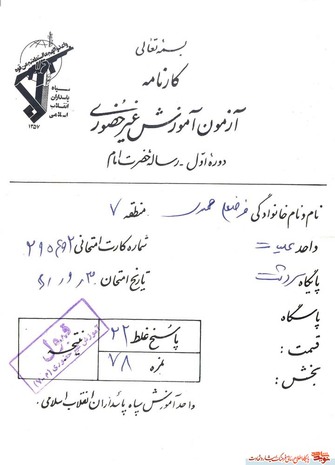 بسمه تعالی
کارنامه
سپاه
پاسداران
انقلاب
اسلامی
۱۳۵۷
آزمون آموزش غیر حضوری
دوره اول - رساله حضرت امام
نام و نام خانوادگی
منطقه ۷
واحد
شماره کارت امتحانی ۲۹۵۶۹۲
پایگاه
تاریخ امتحان
پاسگاه
قسمت :
بخش :
پاسخ غلط ۲۲
نمره ۷۸
نتیجه
قبول
آموزش غیر حضوری
واحد آموزش سپاه پاسداران انقلاب اسلامی.